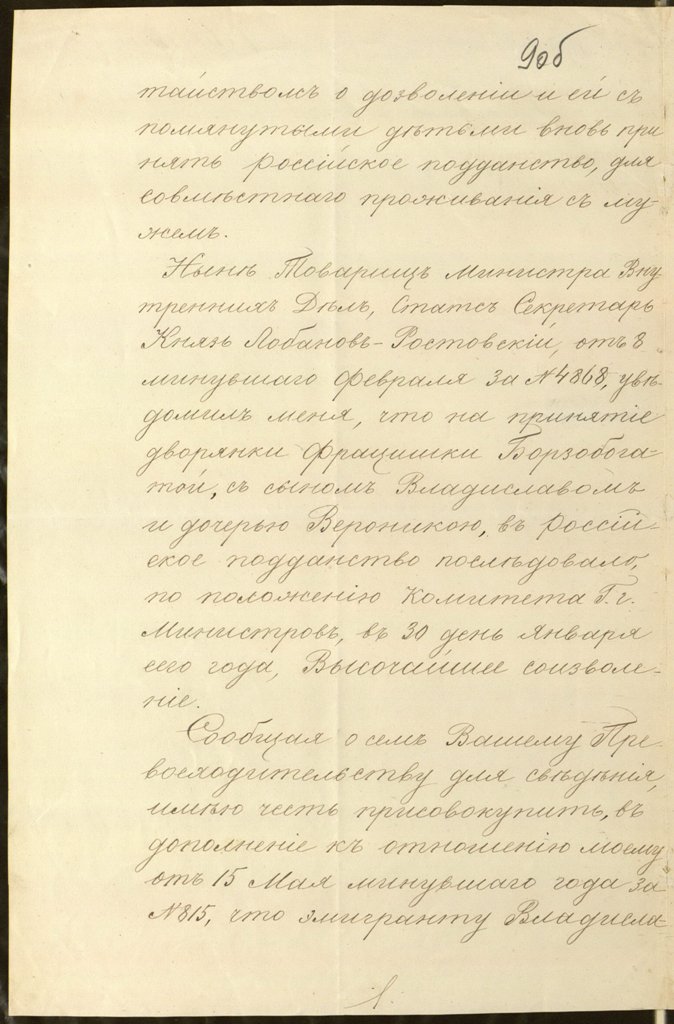 90б
тайствомъ о дозволеніи и ей съ
помянутыми дѣтьми вновь при
нять россійское подданство, для
совмѣстнаго проживанія съ му-
жемъ.
Нынѣ Товарищъ Министра Вну
треннихъ Дѣлъ, Статсъ Секретарь
Князь Лобановъ-Ростовскій, отъ 8
минувшаго февраля за №4868, увѣ-
домилъ меня, что на принятіе
дворянки Фрацишки Борзобога-
той, съ сыномъ Владиславомъ
и дочерью Вероникою, въ россій-
ское подданство послѣдовало,
по положенію Комитета Г.г.
Министровъ, въ 30 день января
сего года, Высочайшее соизволе-
ніе.
Сообщая о семъ Вашему Пре-
восходительству для свѣдѣнія,
имѣю честь присовокупить, въ
дополненіе къ отношенію моему
отъ 15 Мая минувшаго года за
№815, что эмигранту Владисла-